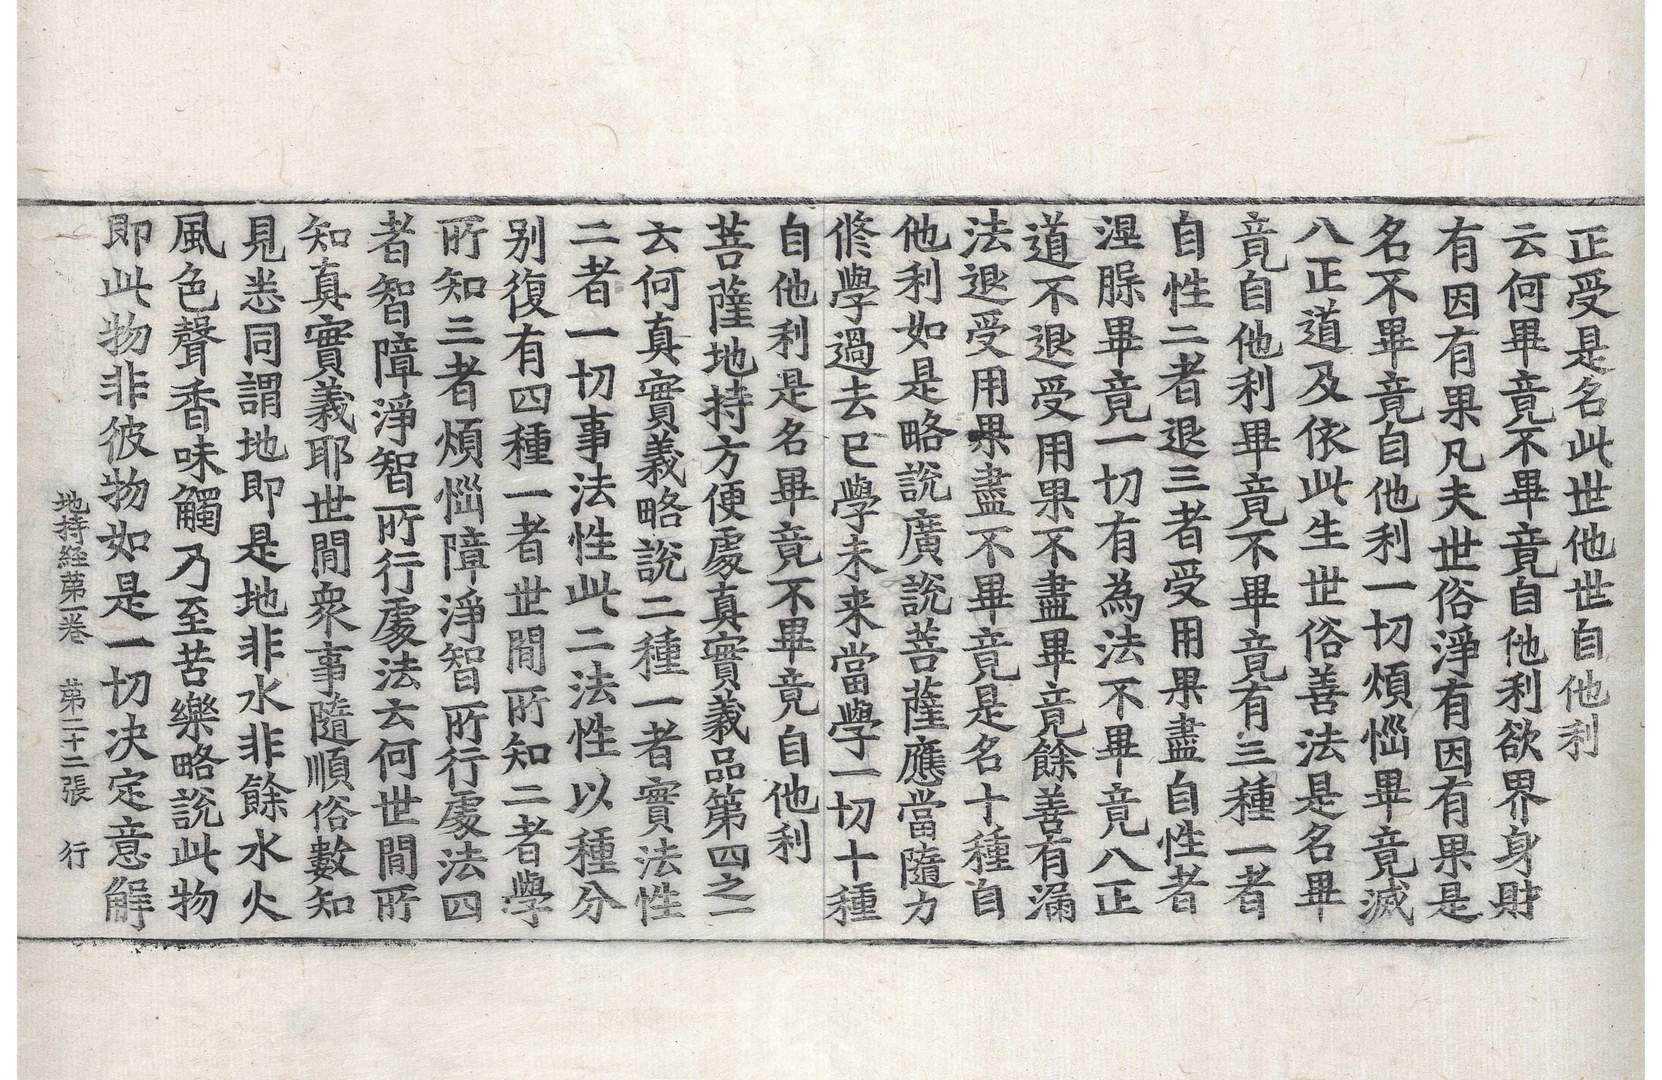 正受是名此世他世自他利
云何畢竟不畢竟自他利欲界身財
有因有果凡夫世俗淨有因有果是
名不畢竟自他利一切煩惱畢竟滅
八正道及依此生世俗善法是名畢
竟自他利畢竟不畢竟有三種一者
自性二者退三者受用果盡自性者
涅槃畢竟一切有為法不畢竟八正
道不退受用果不盡畢竟餘善有漏
法退受用果盡不畢竟是名十種自
他利如是略說廣說菩薩應當隨力
修學過去已學未来當學一切十種
自他利是名畢竟不畢竟自他利
菩薩地持方便處真實義品第四之一
云何真實義略說二種一者實法性
二者一切事法性此二法性以種分
别復有四種一者世間所知二者學
所知三者煩惱障淨智所行處法四
者智障淨智所行處法云何世間所
知真實義耶世間衆事隨順俗數知
見悉同謂地即是地非水非餘水火
風色聲香味觸乃至苦樂略說此物
即此物非彼物如是一切决定意解
地持経苐一卷 苐二十二張 行